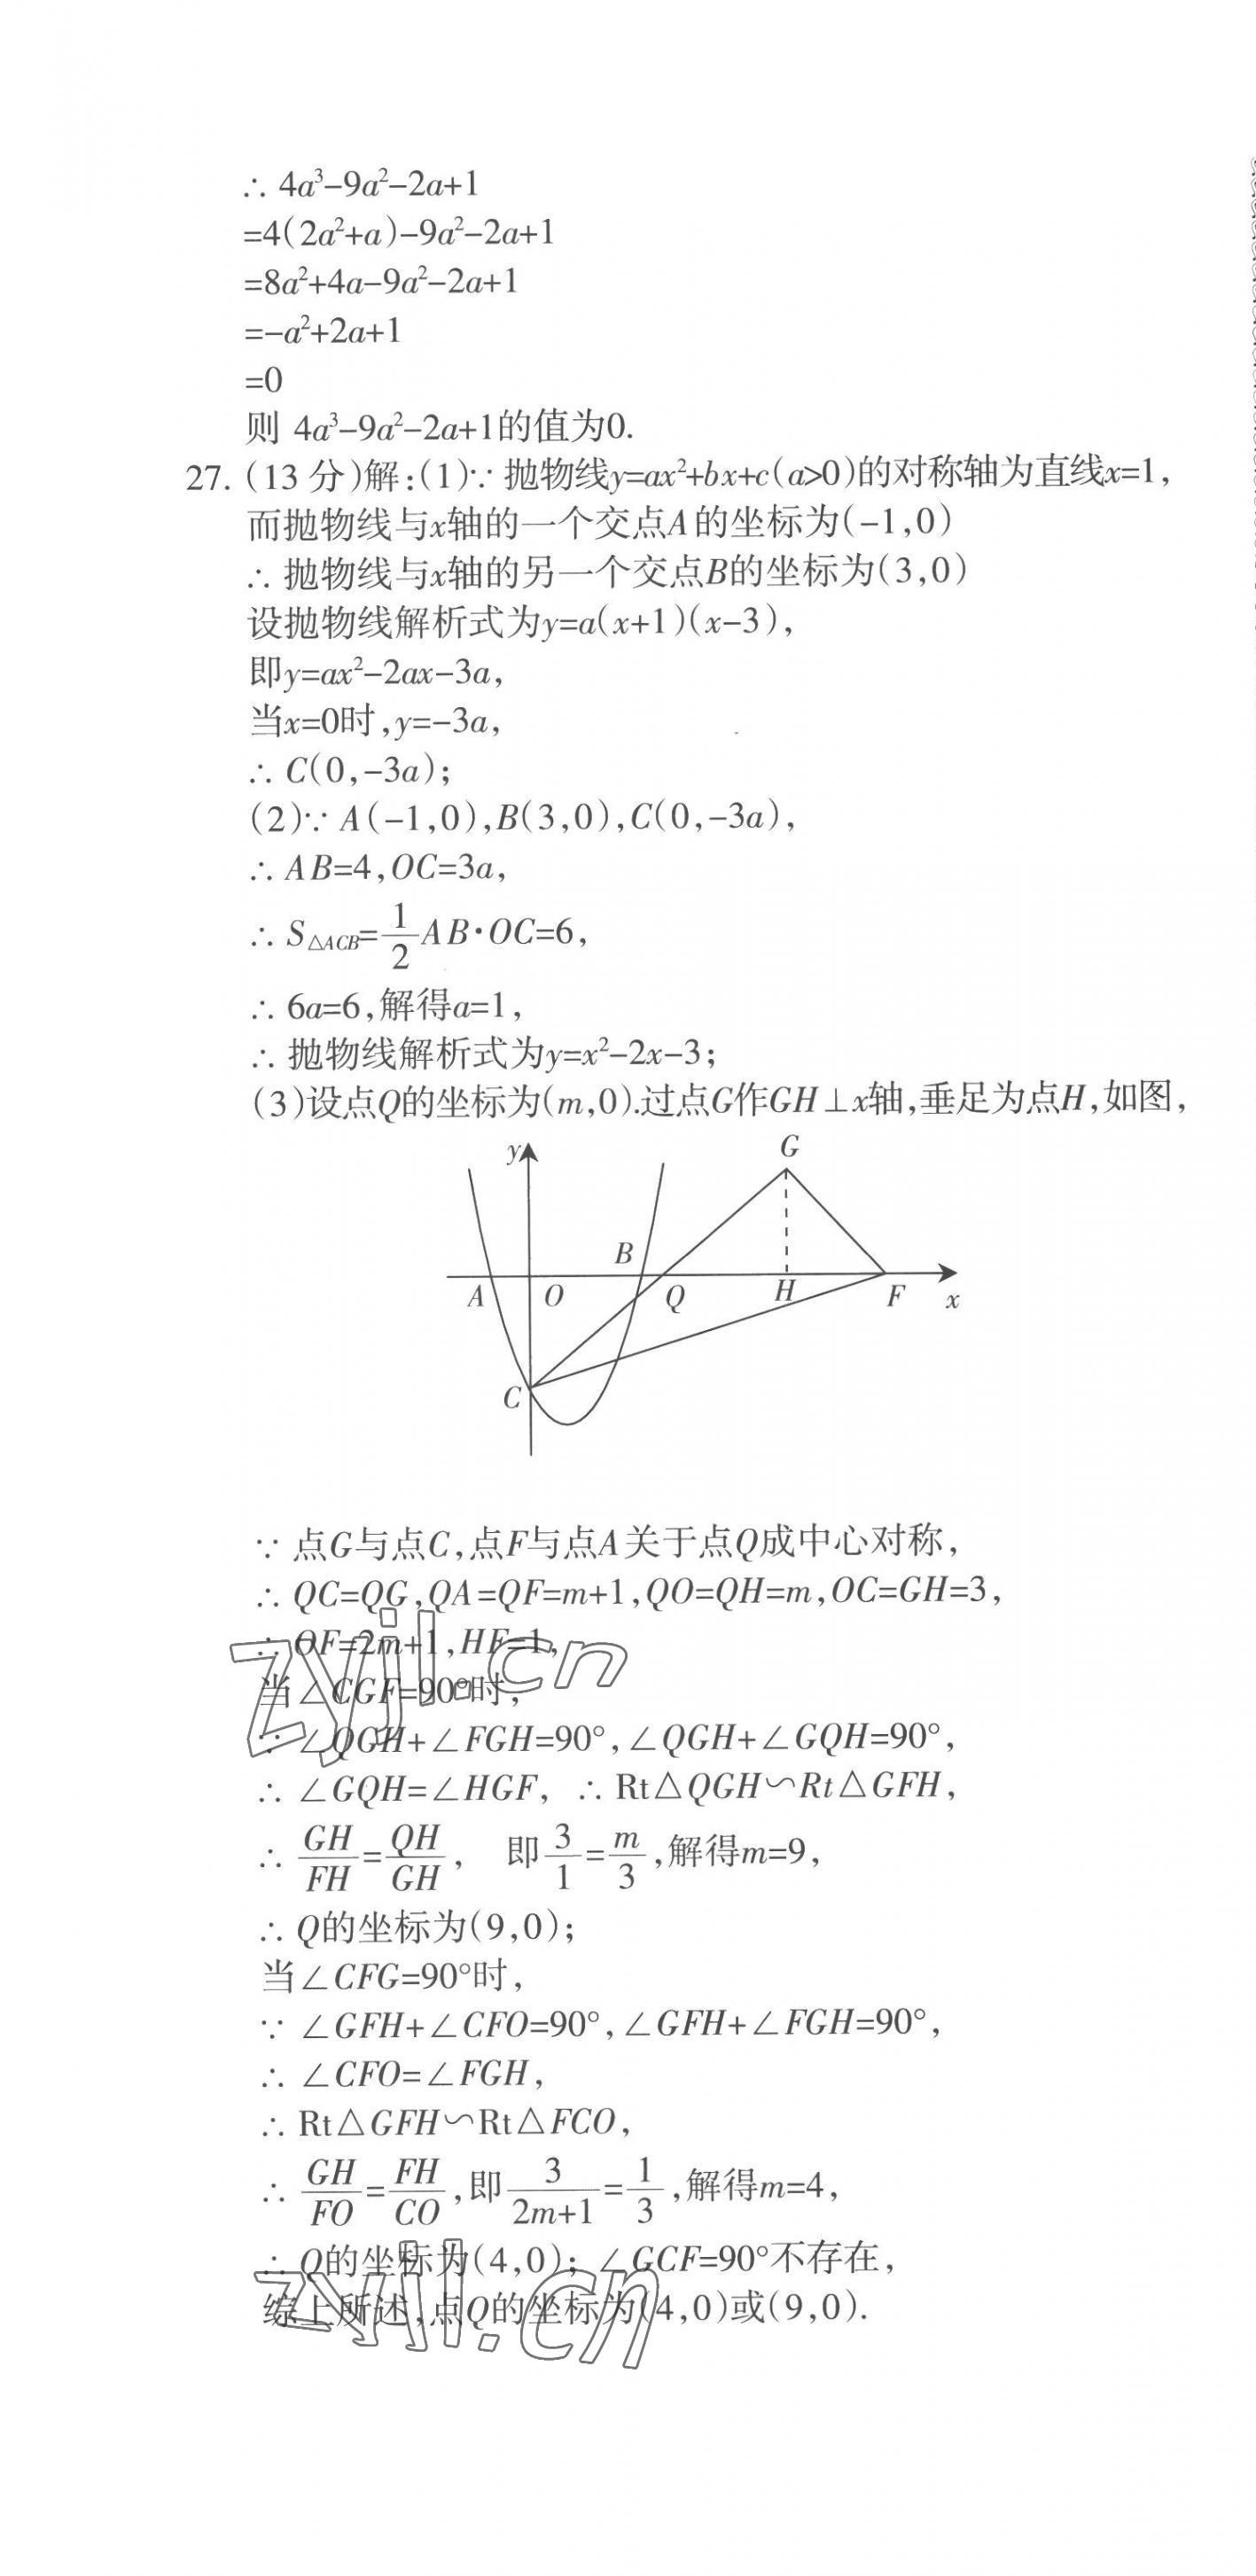 ∴ 4a³-9a²-2a+1
=4(2a²+a)-9a²-2a+1
=8a²+4a-9a²-2a+1
=-a²+2a+1
=0
则 4a³-9a²-2a+1的值为0.
27.(13 分)解:(1)∵ 抛物线y=ax²+bx+c(a>0)的对称轴为直线x=1,
而抛物线与x轴的一个交点A的坐标为(-1,0)
∴ 抛物线与x轴的另一个交点B的坐标为(3,0)
设抛物线解析式为y=a(x+1)(x-3),
即y=ax²-2ax-3a,
当x=0时,y=-3a,
∴ C(0,-3a);
(2)∵ A(-1,0),B(3,0),C(0,-3a),
∴ AB=4,OC=3a,
∴ S△ACB=1/2 AB·OC=6,
∴ 6a=6,解得a=1,
∴ 抛物线解析式为y=x²-2x-3;
(3)设点Q的坐标为(m,0).过点G作GH⊥x轴,垂足为点H,如图,
y G
B
A O Q H F x
C
∵ 点G与点C,点F与点A关于点Q成中心对称,
∴ QC=QG,QA=QF=m+1,QO=QH=m,OC=GH=3,
∴ OF=2m+1,HF=1,
当∠CGF=90°时,
∵ ∠QGH+∠FGH=90°,∠QGH+∠GQH=90°,
∴ ∠GQH=∠HGF, ∴ Rt△QGH∽Rt△GFH,
∴ GH/FH=QH/GH, 即3/1=m/3,解得m=9,
∴ Q的坐标为(9,0);
当∠CFG=90°时,
∵ ∠GFH+∠CFO=90°,∠GFH+∠FGH=90°,
∴ ∠CFO=∠FGH,
∴ Rt△GFH∽Rt△FCO,
∴ GH/FO=FH/CO,即3/(2m+1)=1/3,解得m=4,
∴ Q的坐标为(4,0);∠GCF=90°不存在,
综上所述,点Q的坐标为(4,0)或(9,0).
zyjl.cn
zyjl.cn